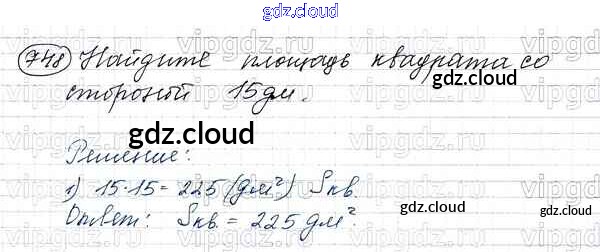 gdz.cloud
748 Найдите площадь квадрата со
gdz.cloud
стороной 15 дм.
gdz.cloud
Решение:
1) 15·15 = 225 (дм²) Sкв.
gdz.cloud
Ответ: Sкв. = 225 дм².
gdz.cloud
gdz.cloud